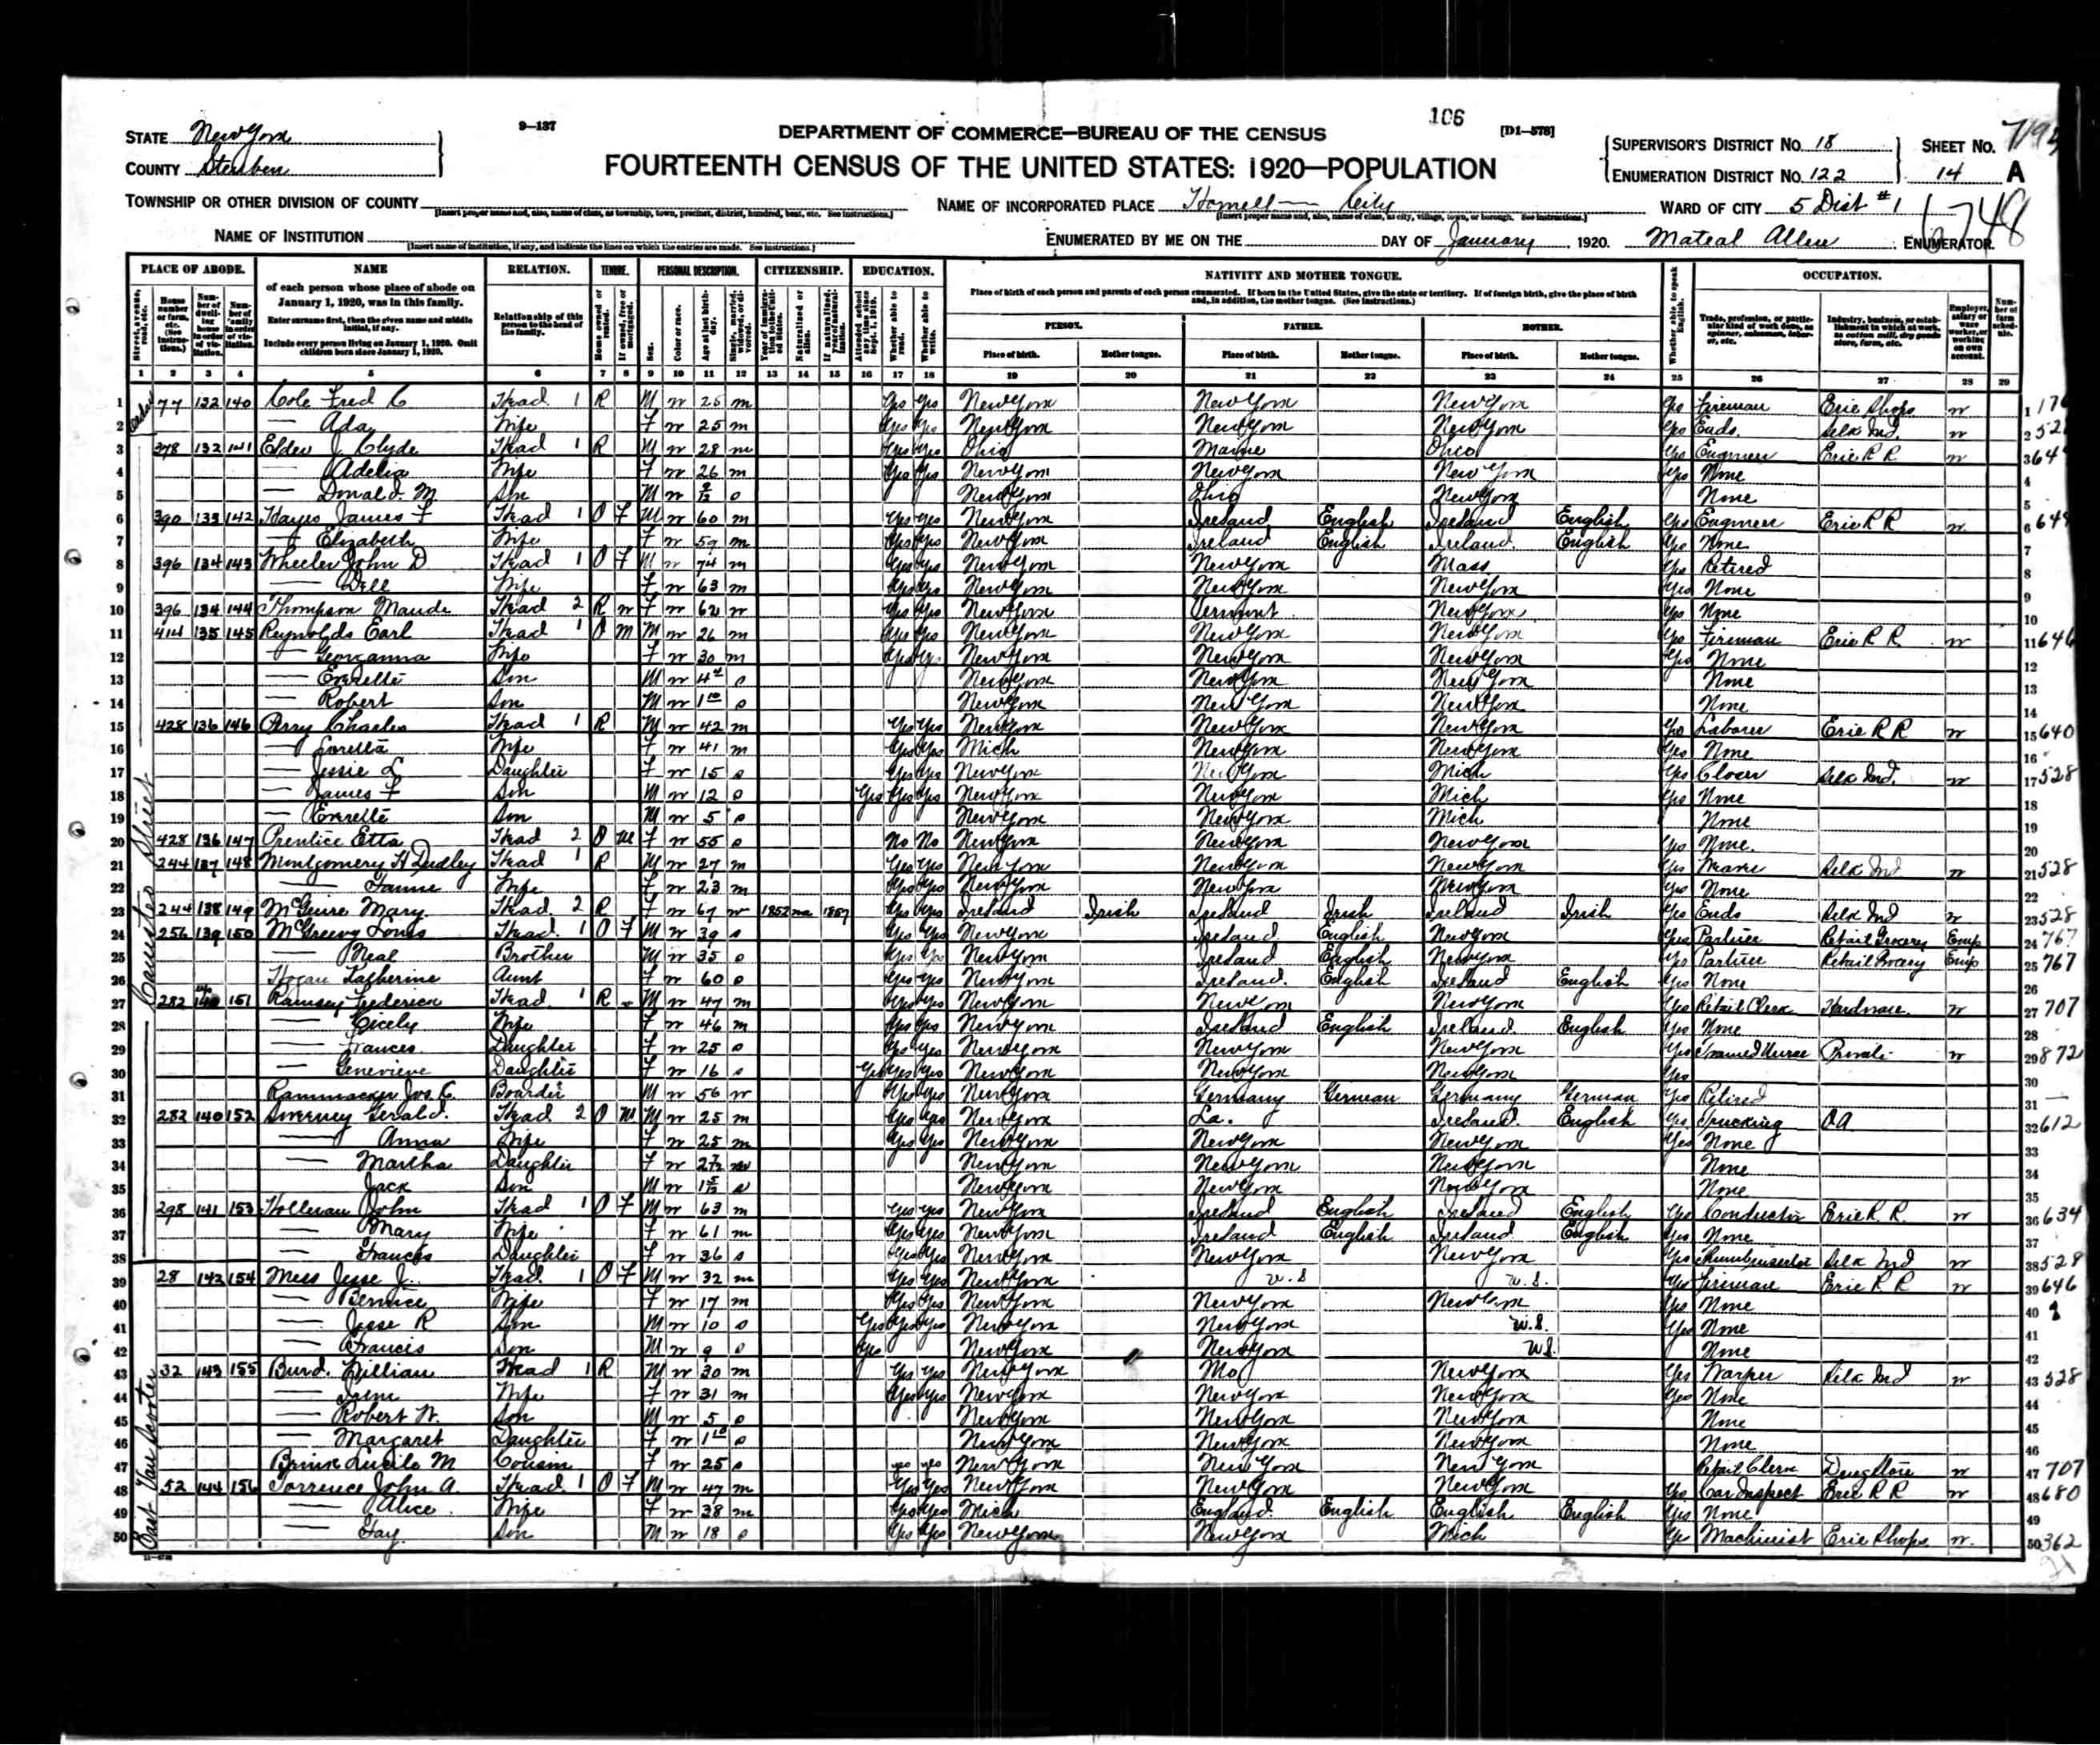 106
7195
STATE New York
9—137
DEPARTMENT OF COMMERCE—BUREAU OF THE CENSUS
[D1—578]
SUPERVISOR'S DISTRICT No. 18
SHEET No.
COUNTY Steuben
FOURTEENTH CENSUS OF THE UNITED STATES: 1920—POPULATION
ENUMERATION DISTRICT No. 122
14 A
TOWNSHIP OR OTHER DIVISION OF COUNTY
NAME OF INCORPORATED PLACE Hornell City
WARD OF CITY 5 Dist #1
6748
NAME OF INSTITUTION
ENUMERATED BY ME ON THE DAY OF January, 1920. Allen ENUMERATOR.
PLACE OF ABODE. NAME RELATION. TENURE. PERSONAL DESCRIPTION. CITIZENSHIP. EDUCATION. NATIVITY AND MOTHER TONGUE. OCCUPATION.
of each person whose place of abode on January 1, 1920, was in this family.
Enter surname first, then the given name and middle initial, if any.
Include every person living on January 1, 1920. Omit children born since January 1, 1920.
Relationship of this person to the head of the family.
Place of birth of each person and parents of each person enumerated. If born in the United States, give the state or territory. If of foreign birth, give the place of birth and, in addition, the mother tongue. (See Instructions.)
PERSON. FATHER. MOTHER.
Place of birth. Mother tongue. Place of birth. Mother tongue. Place of birth. Mother tongue.
1 2 3 4 5 6 7 8 9 10 11 12 13 14 15 16 17 18 19 20 21 22 23 24 25 26 27 28 29
1 77 132 140 Cole Fred C Head 1 R M w 25 m Yes Yes New York New York New York Yes Fireman Erie Shops w 1
2 — Ada Wife F w 25 m Yes Yes New York New York New York Yes Ends Silk Ind. w 2
3 378 132 141 J. Clyde Head 1 R M w 28 m Yes Yes Ohio Maine Ohio Yes Engineer Erie R R w 3
4 — Adelia Wife F w 26 m Yes Yes New York New York New York Yes None 4
5 — Donald M Son M w s New York Ohio New York None 5
6 390 133 142 Hayes James F Head 1 O F M w 60 m Yes Yes New York Ireland English Ireland English Yes Engineer Erie R R w 6
7 — Elizabeth Wife F w 59 m Yes Yes New York Ireland English Ireland English Yes None 7
8 396 134 143 Wheeler John D Head 1 O F M w 74 m Yes Yes New York New York Mass Yes Retired 8
9 — Dell Wife F w 63 m Yes Yes New York New York New York Yes None 9
10 396 134 144 Thompson Maude Head 2 R F w 62 w Yes Yes New York Vermont New York Yes None 10
11 414 135 145 Reynolds Earl Head 1 O M M w 26 m Yes Yes New York New York New York Yes Fireman Erie R R w 11 646
12 — Georganna Wife F w 30 m Yes Yes New York New York New York Yes None 12
13 — Everette Son M w s New York New York New York None 13
14 — Robert Son M w s New York New York New York None 14
15 428 136 146 Perry Charles Head 1 R M w 42 m Yes Yes New York New York New York Yes Laborer Erie R R w 15 640
16 — Loretta Wife F w 41 m Yes Yes Mich New York New York Yes None 16
17 — Jessie L Daughter F w 15 s Yes Yes New York New York Mich Yes Silk Ind. w 17 528
18 — James F Son M w 12 s Yes Yes Yes New York New York Mich Yes None 18
19 — Everette Son M w 5 s New York New York Mich None 19
20 428 136 147 Prentice Etta Head 2 O M F w 55 s No No New York New York New York Yes None 20
21 244 137 148 Montgomery H Dudley Head 1 R M w 27 m Yes Yes New York New York New York Yes Silk Ind w 21 528
22 — Fannie Wife F w 23 m Yes Yes New York New York New York Yes None 22
23 244 138 149 McGuire Mary Head 2 R F w 67 w 1852 na 1857 Yes Yes Ireland Irish Ireland Irish Ireland Irish Yes Ends Silk Ind w 23 528
24 256 139 150 McGreevy Louis Head 1 O F M w 39 s Yes Yes New York Ireland English New York Yes Partner Retail Grocery Emp 24 767
25 — Neal Brother M w 35 s Yes Yes New York Ireland English New York Yes Partner Retail Grocery Emp 25 767
26 Hogan Katherine Aunt F w 60 s Yes Yes New York Ireland English Ireland English Yes None 26
27 282 140 151 Ramsey Frederick Head 1 R M w 47 m Yes Yes New York New York New York Yes Retail Clerk Hardware w 27 707
28 — Cicely Wife F w 46 m Yes Yes New York Ireland English Ireland English Yes None 28
29 — Frances Daughter F w 25 s Yes Yes New York New York New York Yes Trained Nurse Private w 29 872
30 — Genevieve Daughter F w 16 s Yes Yes Yes New York New York New York Yes 30
31 Jos. C. Boarder M w 56 w Yes Yes New York Germany German Germany German Yes Retired 31
32 282 140 152 Sweeney Gerald Head 2 O M M w 25 m Yes Yes New York La. Ireland English Yes Trucking OA 32 612
33 — Anna Wife F w 25 m Yes Yes New York New York New York Yes None 33
34 — Martha Daughter F w New York New York New York None 34
35 Jack Son M w s New York New York New York None 35
36 298 141 153 Holleran John Head 1 O F M w 63 m Yes Yes New York Ireland English Ireland English Yes Conductor Erie R. R. w 36 634
37 — Mary Wife F w 61 m Yes Yes New York Ireland English Ireland English Yes None 37
38 — Frances Daughter F w 36 s Yes Yes New York New York New York Yes Silk Ind w 38 528
39 28 142 154 Mess Jesse J. Head 1 O F M w 32 m Yes Yes New York U.S. U.S. Yes Fireman Erie R R w 39 646
40 — Bernice Wife F w 17 m Yes Yes New York New York New York Yes None 40
41 — Jesse R Son M w 10 s Yes Yes Yes New York New York U.S. Yes None 41
42 — Francis Son M w 9 s Yes New York New York U.S. None 42
43 32 143 155 Burd William Head 1 R M w 30 m Yes Yes New York Mo New York Yes Warper Silk Ind w 43 528
44 — Wife F w 31 m Yes Yes New York New York New York Yes None 44
45 — Robert W. Son M w 5 s New York New York New York None 45
46 — Margaret Daughter F w s New York New York New York None 46
47 Brink Lucile M Cousin F w 25 s yes yes New York New York New York Retail Clerk Drug Store w 47 707
48 52 144 156 Torrence John A Head 1 O F M w 47 m Yes Yes New York New York New York Yes Car Inspect Erie R R w 48 680
49 — Alice Wife F w 38 m Yes Yes Mich England English English English Yes None 49
50 — Gay Son M w 18 s Yes Yes New York New York Mich Yes Machinist Erie Shops w 50 362
Canisteo Street
East Van Scoter